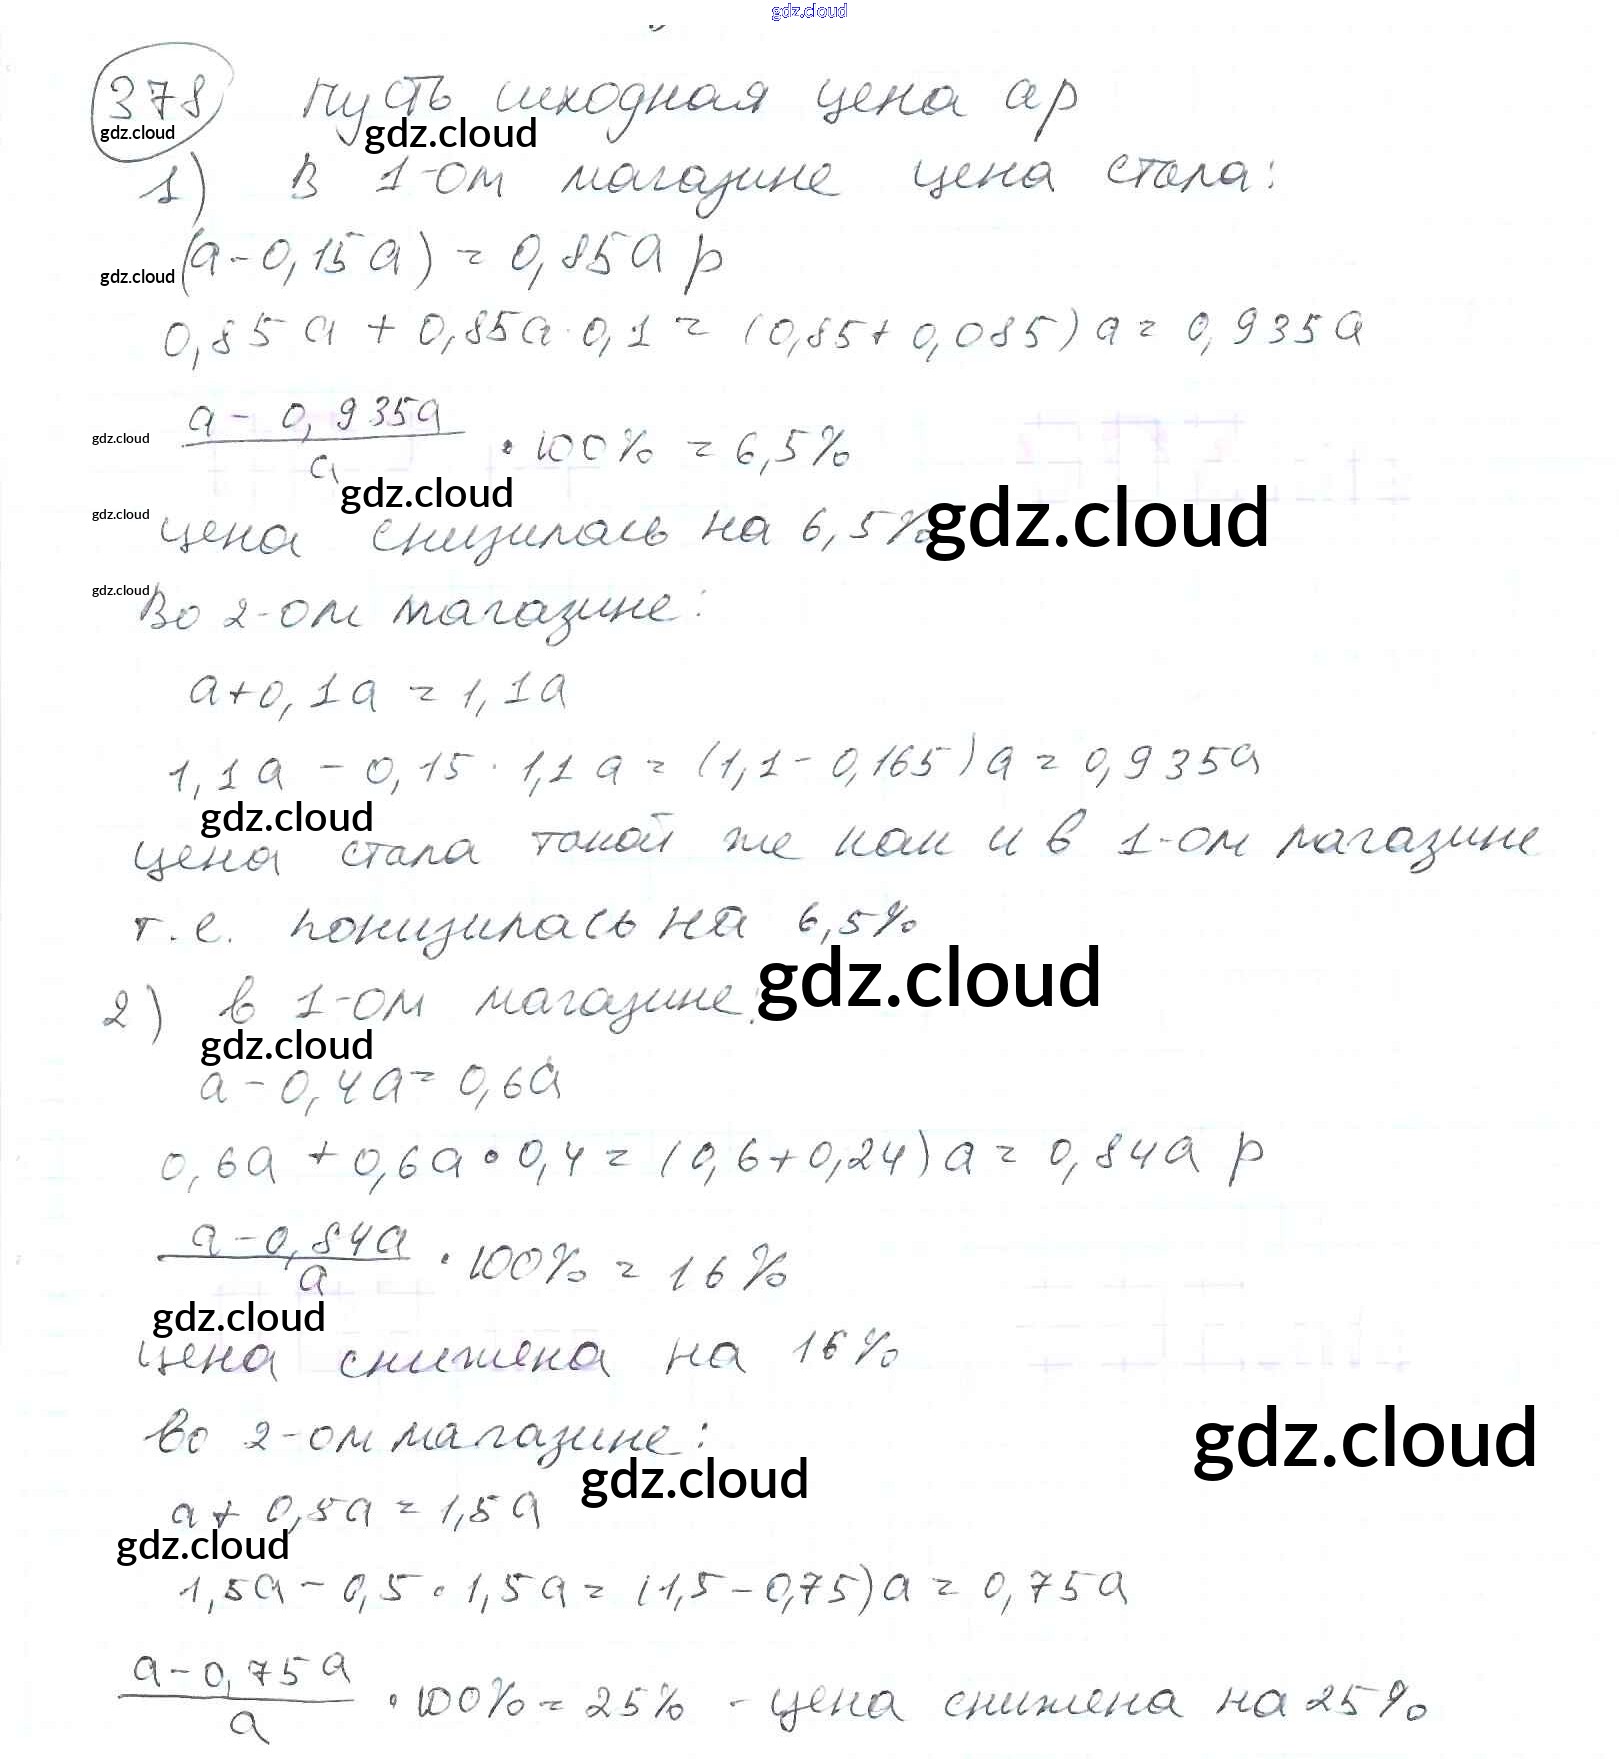 gdz.cloud
378 Пусть исходная цена a р
gdz.cloud gdz.cloud
1) В 1-ом магазине цена стала:
gdz.cloud (a - 0,15a) = 0,85a р
0,85a + 0,85a · 0,1 = (0,85 + 0,085)a = 0,935a
gdz.cloud (a - 0,935a)/a · 100% = 6,5%
gdz.cloud gdz.cloud
gdz.cloud
цена снизилась на 6,5%
gdz.cloud
Во 2-ом магазине:
a + 0,1a = 1,1a
1,1a - 0,15 · 1,1a = (1,1 - 0,165)a = 0,935a
gdz.cloud
цена стала такой же как и в 1-ом магазине
т.е. понизилась на 6,5%
gdz.cloud
2) в 1-ом магазине:
gdz.cloud
a - 0,4a = 0,6a
0,6a + 0,6a · 0,4 = (0,6 + 0,24)a = 0,84a р
(a - 0,84a)/a · 100% = 16%
gdz.cloud
цена снижена на 16%
во 2-ом магазине:
gdz.cloud
gdz.cloud
a + 0,5a = 1,5a
gdz.cloud
1,5a - 0,5 · 1,5a = (1,5 - 0,75)a = 0,75a
(a - 0,75a)/a · 100% = 25% - цена снижена на 25%